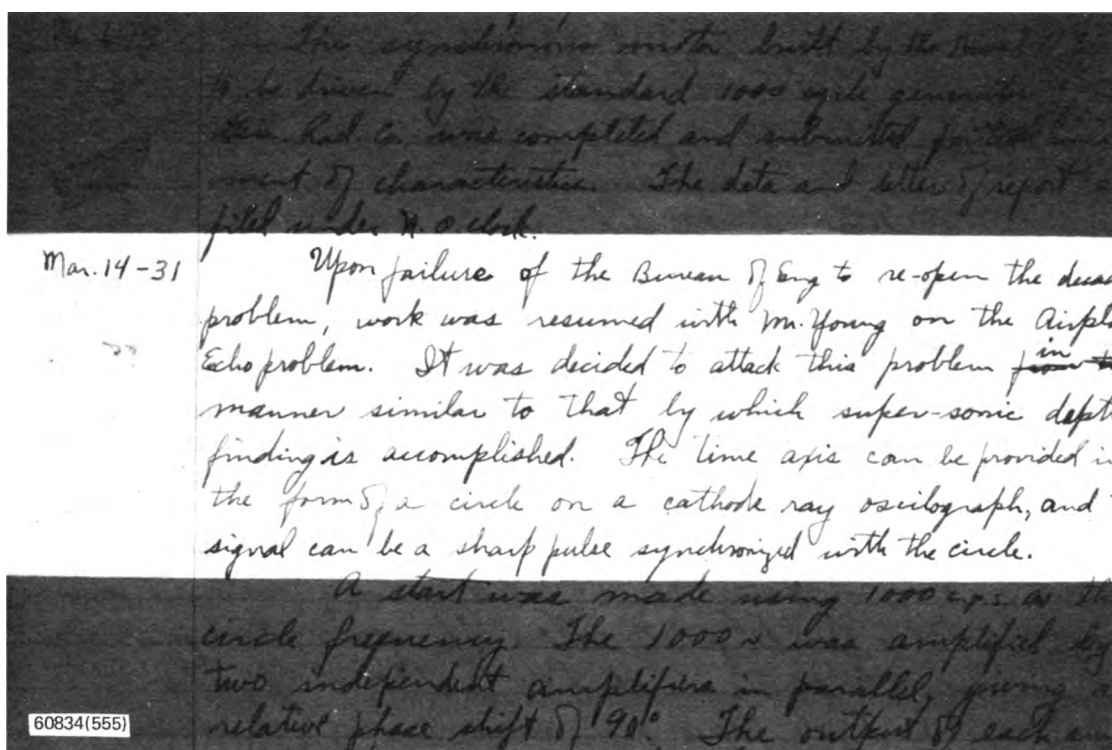 The synchronous motor built by the Naval
to be driven by the standard 1000 cycle generator
Gen Rad Co. was completed and submitted for
ment of characteristics. The data and letter of report
filed under N.O. clock.
Mar. 14-31 Upon failure of the Bureau of Eng to re-open the
problem, work was resumed with Mr. Young on the Airpl
Echo problem. It was decided to attack this problem in
manner similar to that by which super-sonic depth
finding is accomplished. The time axis can be provided in
the form of a circle on a cathode ray oscilograph, and
signal can be a sharp pulse synchronized with the circle.
A start was made using 1000 c.p.s. as the
circle frequency. The 1000 ~ was amplified by
two independent amplifiers in parallel, giving a
relative phase shift of 90°. The output of each am
60834(555)